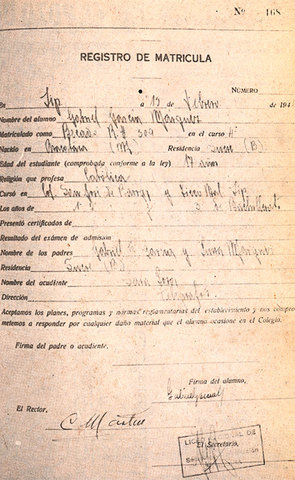 Nº 168
REGISTRO DE MATRICULA
NÚMERO
En Zip a 13 de Febrero de 194
Nombre del alumno Gabriel García Márquez
Matriculado como Becado R.# 309 en el curso 4º
Nacido en (M) Residencia Sucre (B)
Edad del estudiante (comprobada conforme a la ley) 17 años
Religión que profesa Católica
Cursó en Col. San José de y Liceo Nal Zip
Los años de 1º y 3º de Bachillerato
Presentó certificados de
Resultado del exámen de admisión
Nombre de los padres Gabriel E. García y Luisa Márquez
Residencia Sucre (B)
Nombre del acudiente Sara
Dirección
Aceptamos los planes, programas y normas reglamentarias del establecimiento y nos compro-
metemos a responder por cualquier daño material que el alumno ocasione en el Colegio.
Firma del padre o acudiente,
Firma del alumno,
El Rector,
El Secretario,
LICEO DE